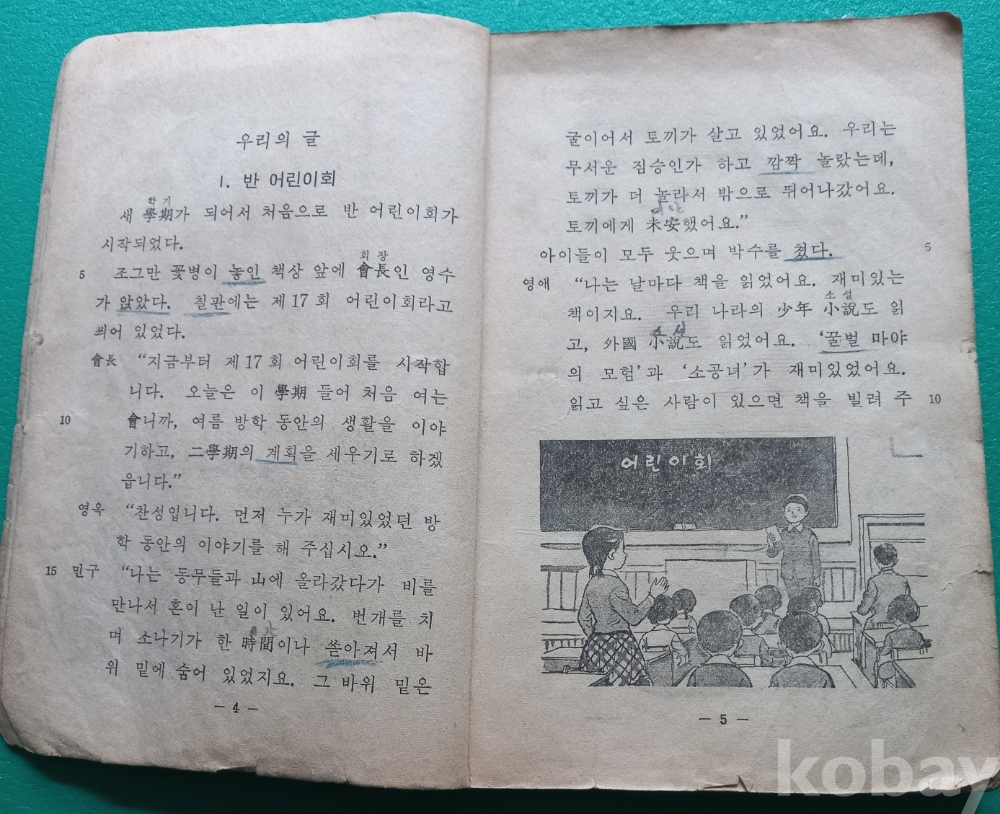 우리의 글
1. 반 어린이회
학기
새 學期가 되어서 처음으로 반 어린이회가
시작되었다.
회장
5 조그만 꽃병이 놓인 책상 앞에 會長인 영수
가 앉았다. 칠판에는 제 17 회 어린이회라고
씌어 있었다.
會長 “지금부터 제 17 회 어린이회를 시작합
니다. 오늘은 이 學期 들어 처음 여는
10 會니까, 여름 방학 동안의 생활을 이야
기하고, 二學期의 계획을 세우기로 하겠
읍니다.”
영옥 “찬성입니다. 먼저 누가 재미있었던 방
학 동안의 이야기를 해 주십시오.”
15 민구 “나는 동무들과 山에 올라갔다가 비를
만나서 혼이 난 일이 있어요. 번개를 치
며 소나기가 한 時間이나 쏟아져서 바
위 밑에 숨어 있었지요. 그 바위 밑은
— 4 —
굴이어서 토끼가 살고 있었어요. 우리는
무서운 짐승인가 하고 깜짝 놀랐는데,
토끼가 더 놀라서 밖으로 뛰어나갔어요.
토끼에게 未安했어요.”
아이들이 모두 웃으며 박수를 쳤다. 5
영애 “나는 날마다 책을 읽었어요. 재미있는
책이지요. 우리 나라의 少年 小說도 읽
소설
고, 外國 小說도 읽었어요. ‘꿀벌 마야
소설
의 모험’과 ‘소공녀’가 재미있었어요.
읽고 싶은 사람이 있으면 책을 빌려 주 10
어린이회
— 5 —
kobay